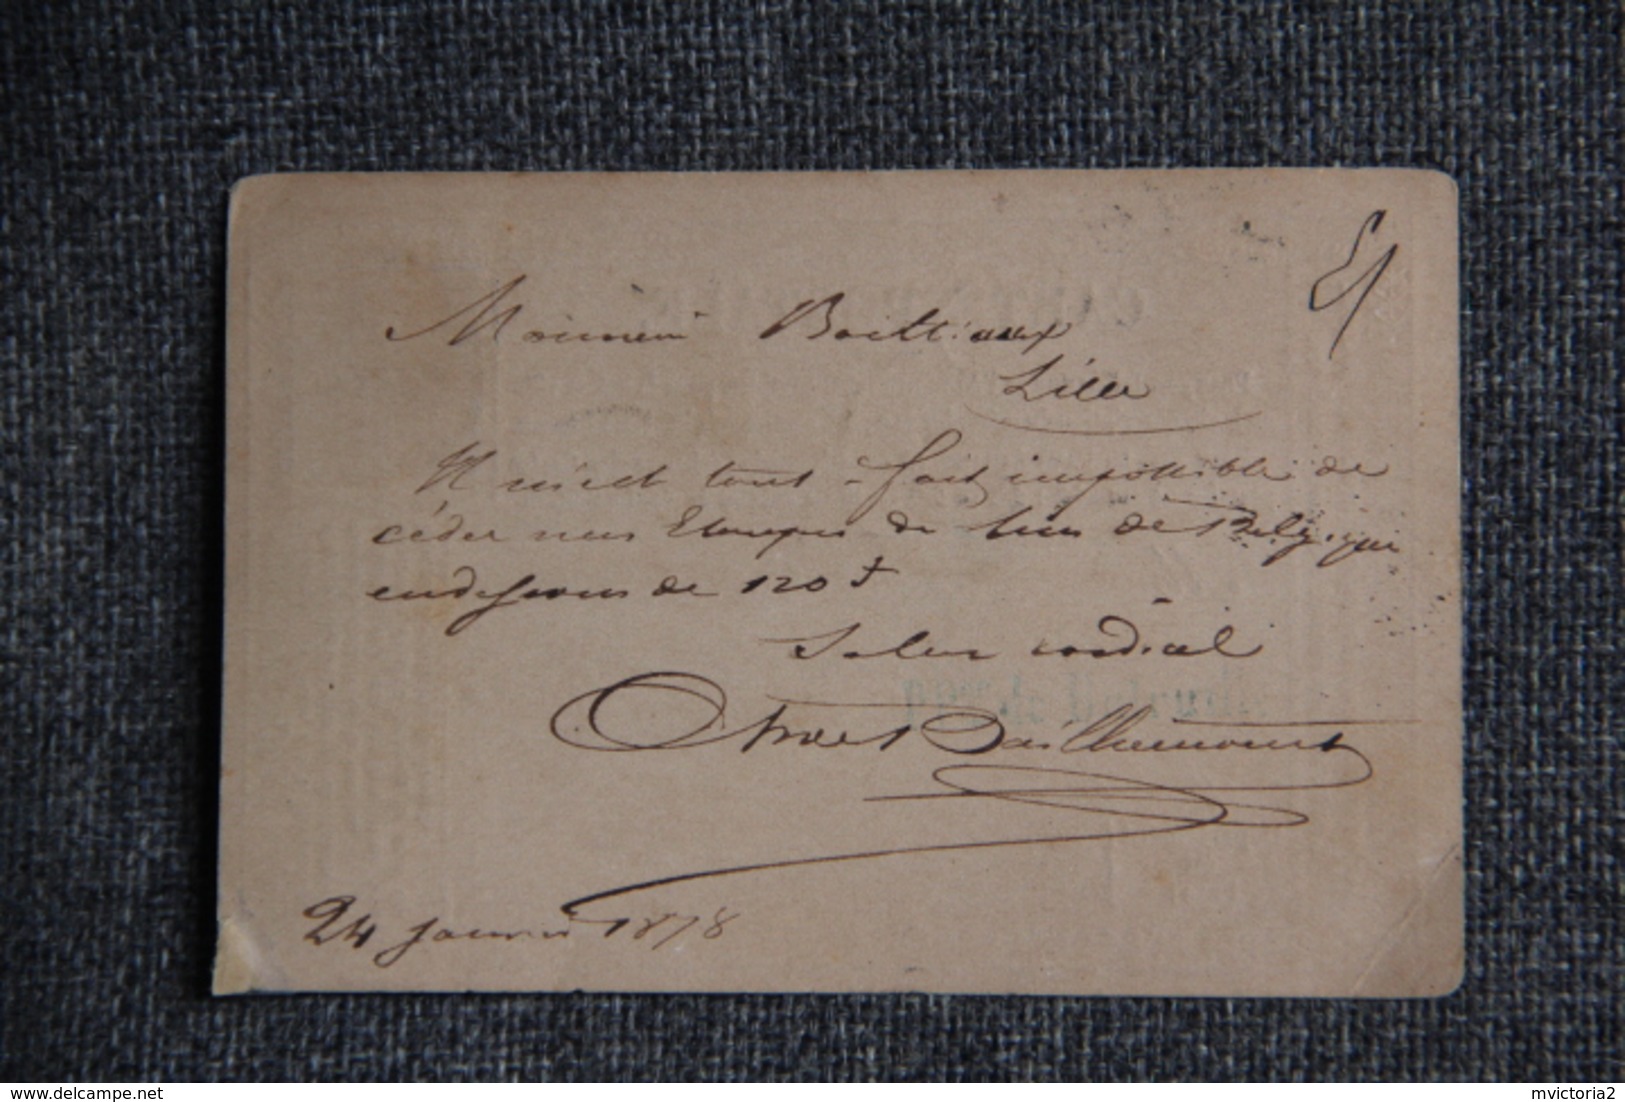 Monsieur Boittiaux
Lille
Il m'est tout - fait impossible de
céder nos Etoupes de lin de Belgique
en dessous de 120 f
Salut cordial
24 janvier 1878
delcampe.net
mvictoria2